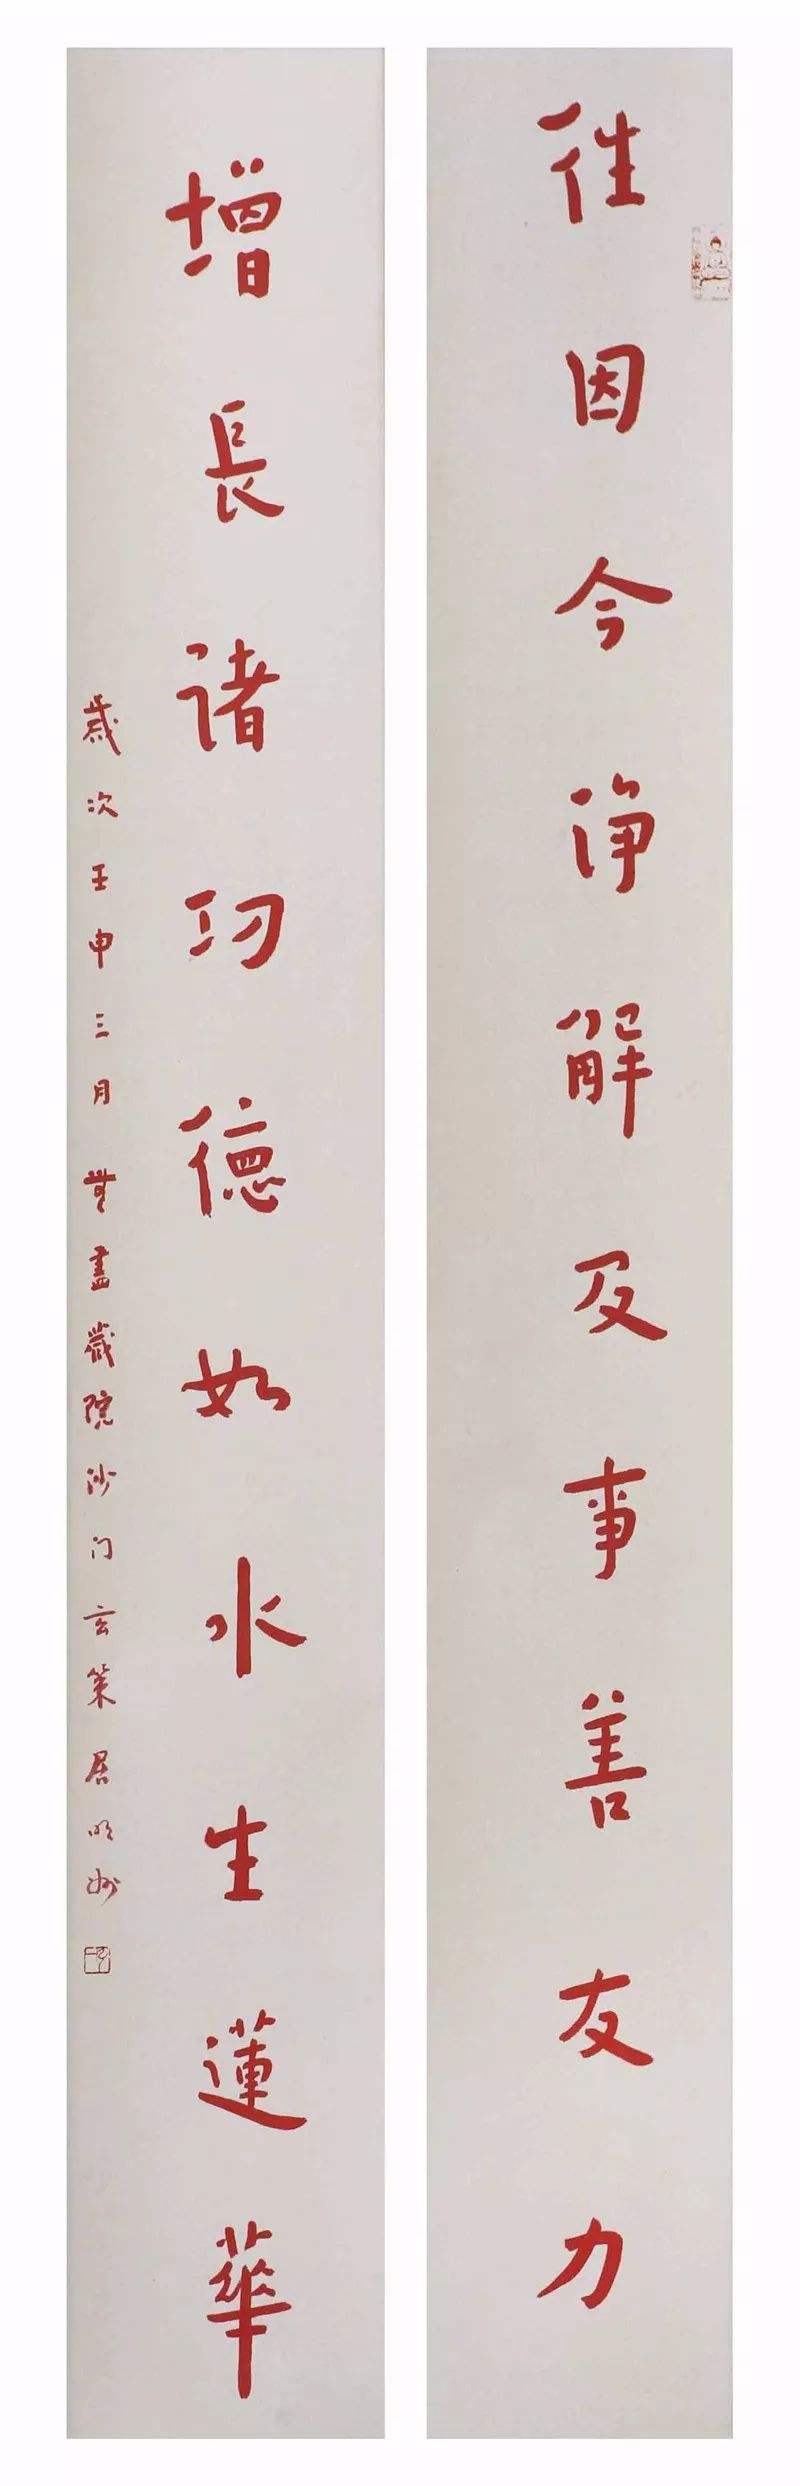 往因今净解及事善友力
增長諸功德如水生蓮華
歲次壬申三月無盡藏院沙门玄策居明州